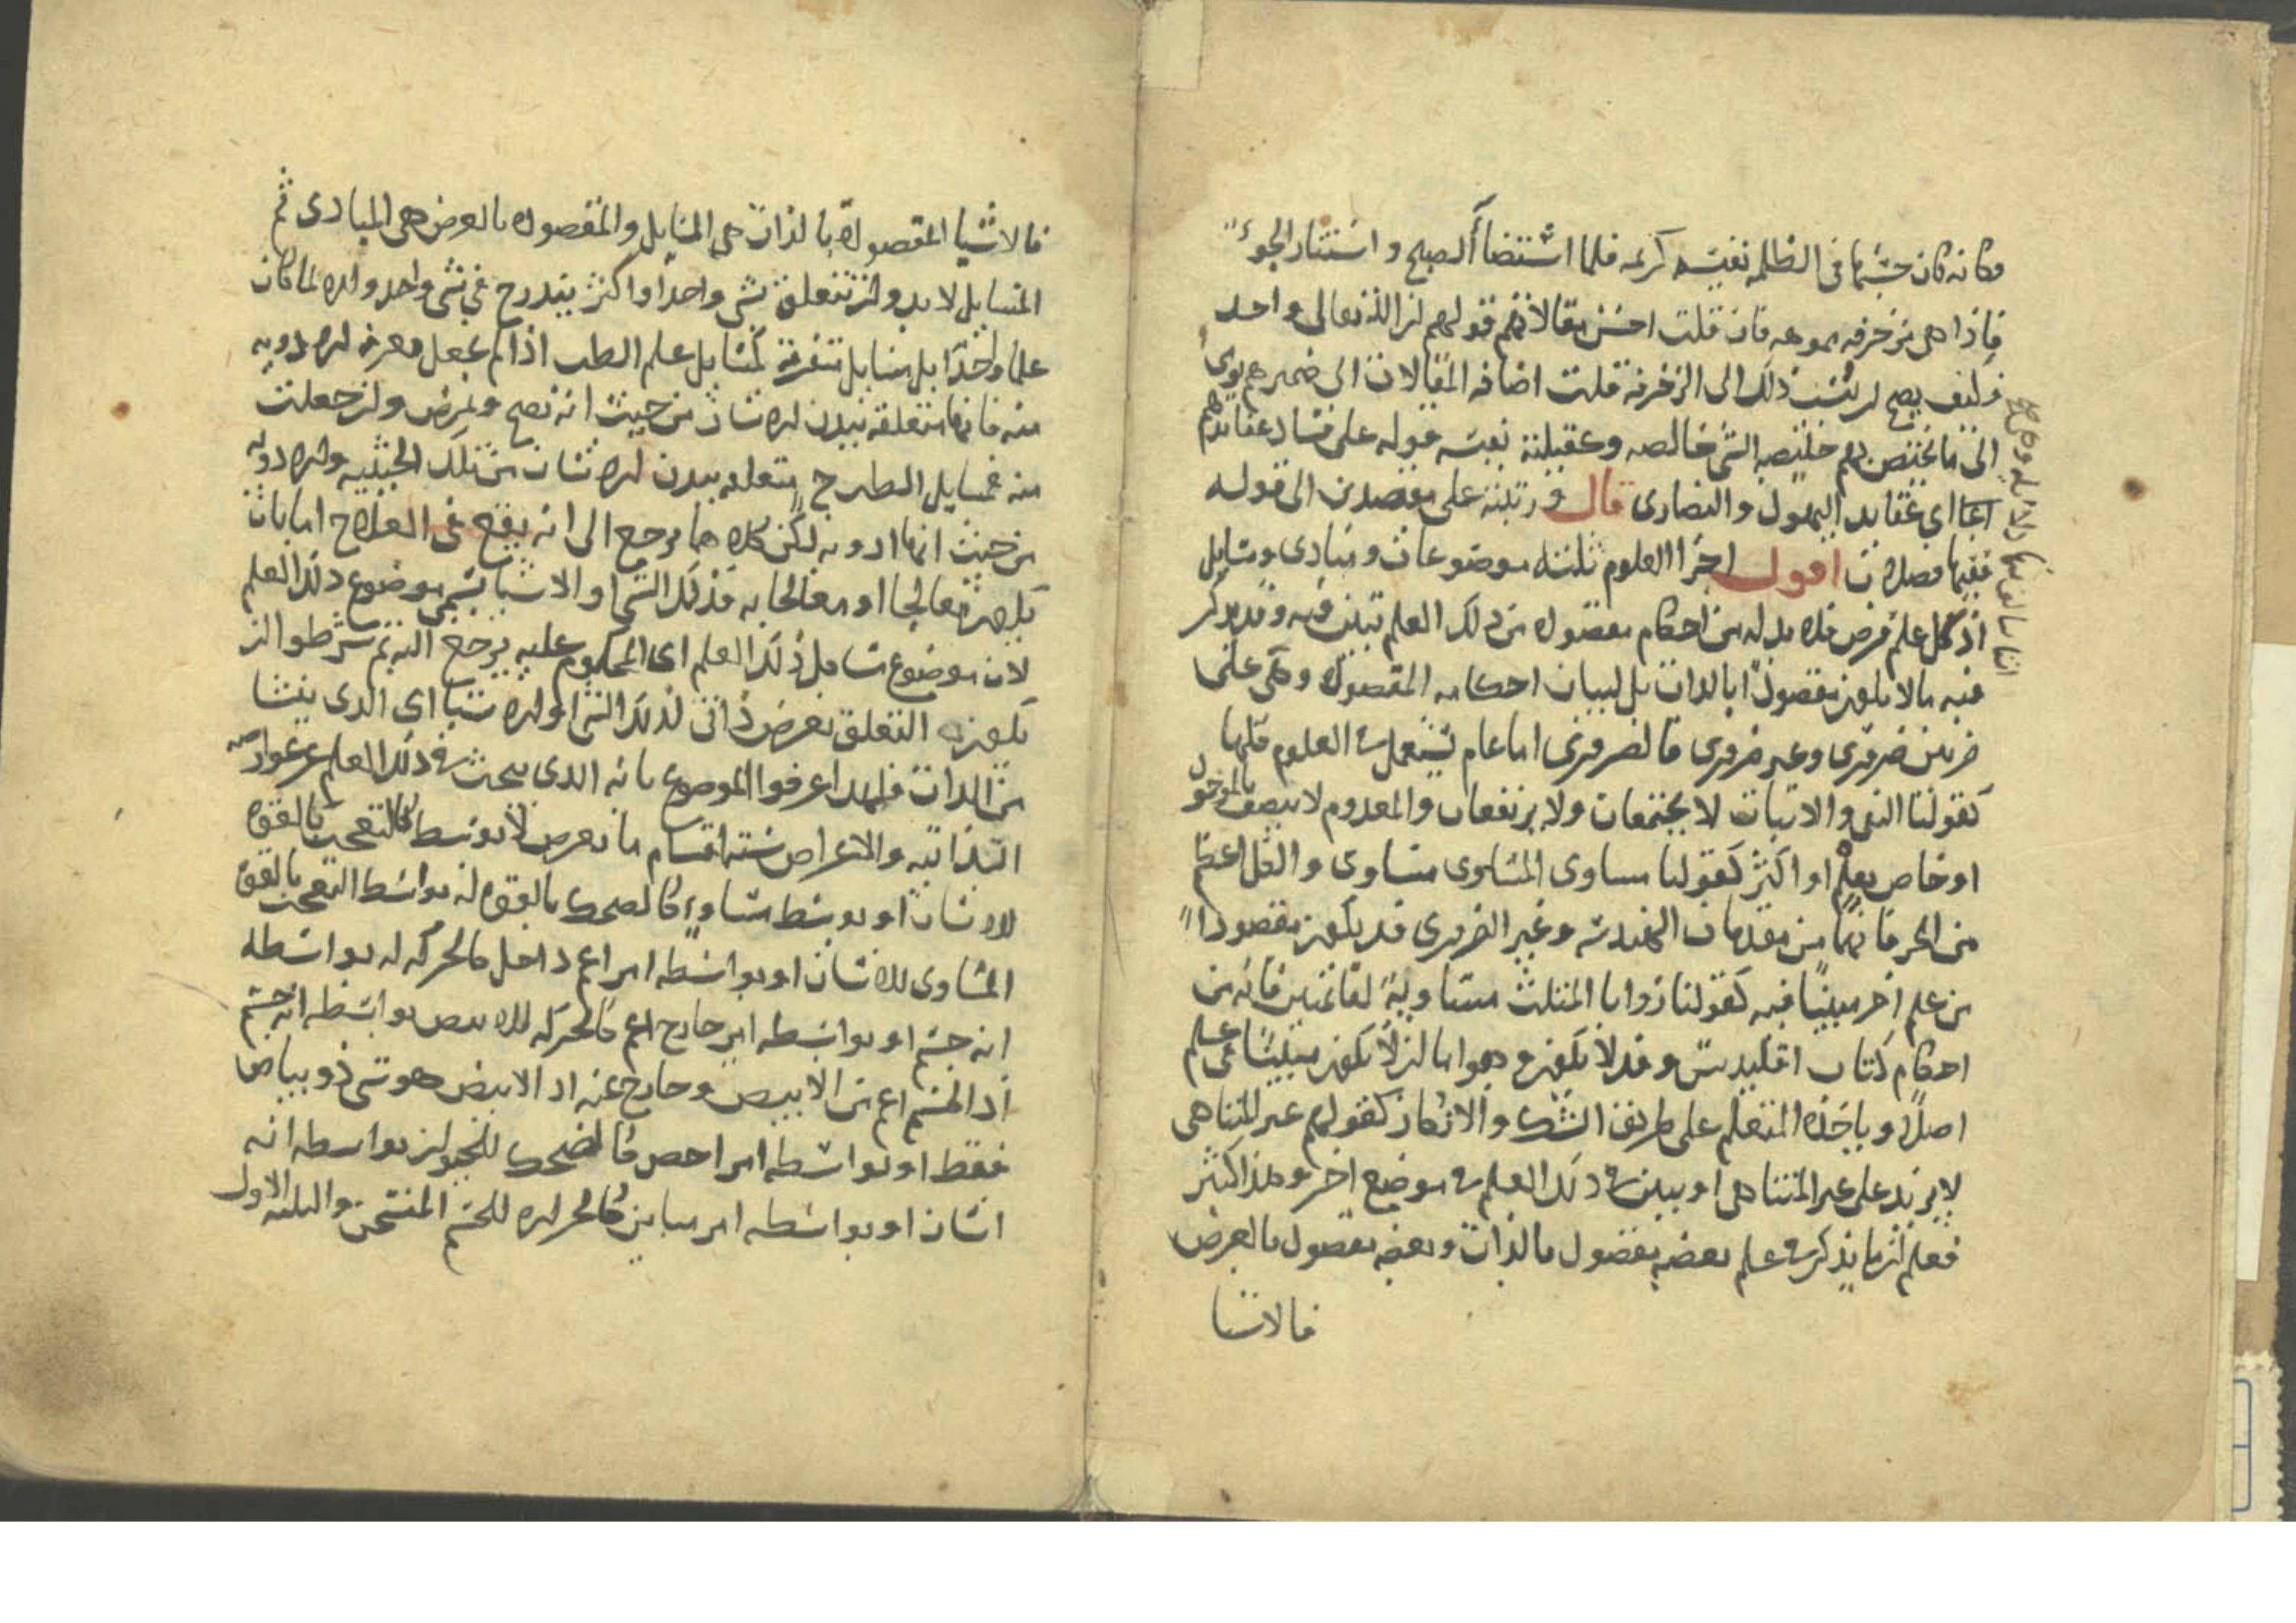 وكانه كان حسبها في الظلمه نفيسه كريمه فلما استضاأ الصبح و استنار الجو
فاذا هي مزخرفه مموهه فان قلت احسن مقالاتهم قولهم ان الله تعالى واحد
فكيف يصح ان ينسب ذلك الى الزخرفة قلت اضافه المقالات الى ضميرهم يومي
الى ما يختص بهم خليصه الشي خالصه وعقيلته نفيسه قوله على فساد عقايدهم
اي عقايد اليهود والنصارى قال ورتبته على مقصدين الى قوله
ففيها فصلان اقول اجزا العلوم ثلثه موضوعات ومبادى ومسايل
اذ كل علم فرض فلا بد له من احكام مقصوده من ذلك العلم تبين فيه وقد يذكر
فيه ما لا يكون مقصودا بالذات بل لبيان احكامه المقصوده وهي على
ضربين ضروري وغير ضروري فالضروري اما عام يستعمل في العلوم كلها
كقولنا النفي والاثبات لا يجتمعان ولا يرتفعان والمعدوم لا يتصف بالوجود
او خاص بعلم او اكثر كقولنا مساوى المساوى مساوى والكل اعظم
من الجز فانهما من مقدمات الهندسه وغير الضروري قد يكون مقصودا
من علم اخر مبينا فيه كقولنا زوايا المثلث مساوية لقائمتين فانه من
احكام كتاب اقليدس وقد لا يكون وهو اما ان لا يكون مبينا في علم
اصلا وياخذه المتعلم على طريق الشك والانكار كقولهم غير المتناهي
لا يزيد على غير المتناهي او يبين في ذلك العلم في موضع اخر وهذا كثير
فعلم ان ما يذكر في علم بعضه مقصود بالذات وبعضه مقصود بالعرض
فالاشيا
فالاشيا المقصودة بالذات هي المسايل والمقصوده بالعرض هي المبادى ثم
المسايل لا بد وان تتعلق بشي واحد او اكثر يندرج في شي واحد والا لما كان
علما واحدا بل مسايل متفرقة كمسايل علم الطب اذا لم يجعل معرفة الادويه
منه فانها متعلقه ببدن الانسان من حيث انه يصح ويمرض وان جعلت
منه فمسايل الطب ح متعلقه ببدن الانسان من تلك الحيثيه والادويه
من حيث انها ادويه لكن كلاهما يرجع الى انه يقع في العلاج اما بان
يكون معالجا او معالجا به فذلك الشي او الاشيا يسمى موضوع ذلك العلم
لان موضوع مسايل ذلك العلم اى المحكوم عليه يرجع اليه ثم شرطوا ان
يكون التعلق بعرض ذاتي لذلك الشي او الاشيا اي الذي ينشا
من الذات فلهذا عرفوا الموضوع بانه الذي يبحث في ذلك العلم عن عوارضه
الذاتيه والاعراض ستة اقسام ما يعرض لا بوسط كالتعجب بالقوة
للانسان او بوسط مساوٍ كالضحك بالقوه له بواسطه التعجب بالقوة
المساوى للانسان او بواسطه امر اعم داخل كالحركه له بواسطه
انه جسم او بواسطه امر خارج اعم كالحركه للابيض بواسطه انه جسم
اذ الجسم اعم من الابيض وخارج عنه اذ الابيض هو شي ذو بياض
فقط او بواسطه امر اخص كالضحك للحيوان بواسطه انه
انسان او بواسطه امر مباين كالحراره للجسم المتسخن والثلثه الاول